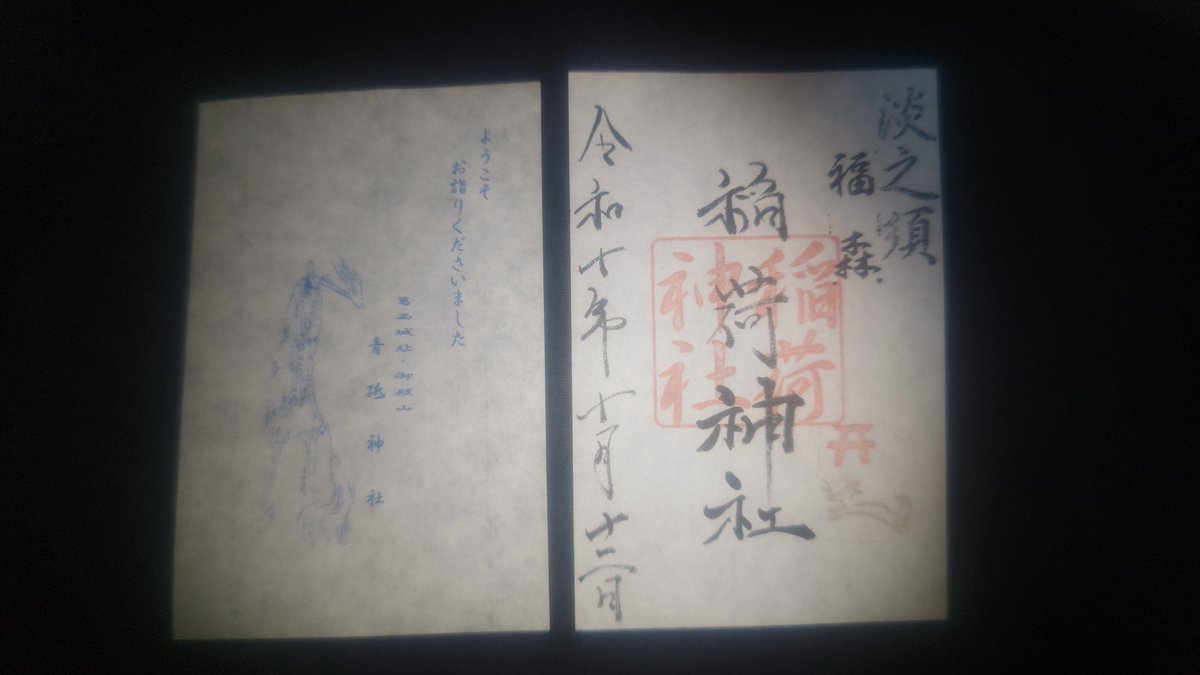 ようこそ
お詣りくださいました
葛西城址・御殿山
青砥神社
淡之須
福森
稲荷神社
稲荷
神社
令和七年十月十二日